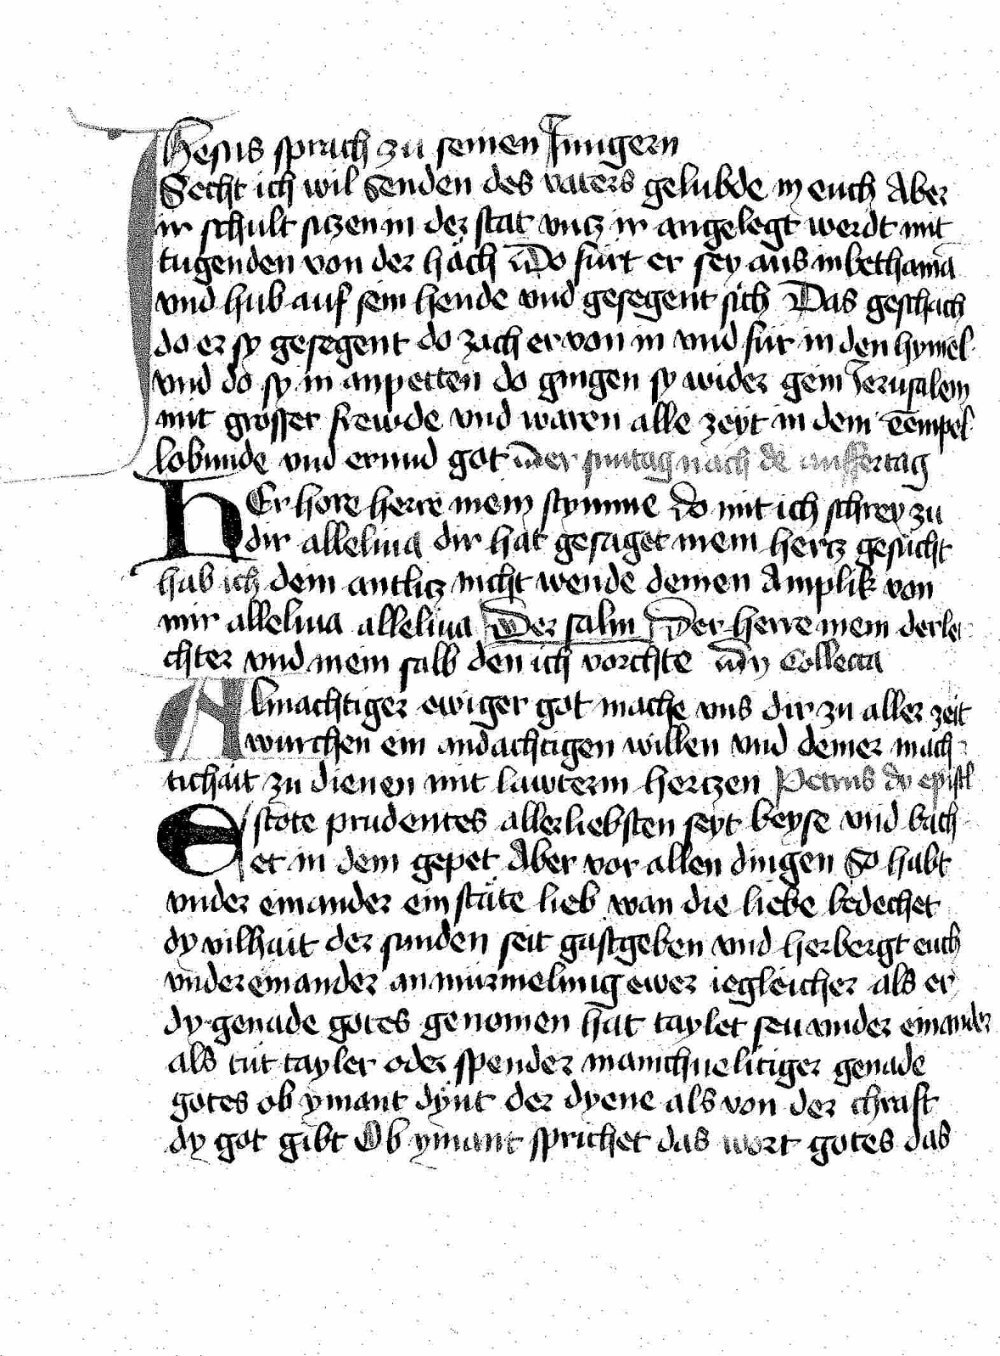 Ihesus sprach zu seinen Jungern
Secht ich wil senden des vaters gelubde in euch Aber
ir schult siczen in der stat vncz ir angelegt werdt mit
tugenden von der häch Do furt er sey aus in bethania
vnd hub auf sein hende vnd gesegent sich Das geschach
do er sy gesegent do zach er von in vnd fur in den hymel
vnd do sy in anpetten do gingen sy wider gein Jerusalem
mit grosser frewde vnd waren alle zeyt in dem tempel
lobunde vnd erund got Der suntag nach de auffertag
HEr hore herre mein stymme do mit ich schrey zu
dir alleluia dir hat gesaget mein hercz gesucht
hab ich dein antlicz nicht wende deinen Amplik von
mir alleluia alleluia Der salm Der herre mein derle
chter vnd mein salb den ich vorchte Collecta
Almachtiger ewiger got mache vns dir zu aller zeit
wurchen ein andachtigen willen vnd deiner mach
tichait zu dienen mit lawterm herczen Petrus dy epistl
Estote prudentes allerliebsten seyt beyse vnd bach
et in dem gepet Aber vor allen dingen So habt
vnder einander ein stäte lieb wan die liebe bedechet
dy vilhait der sunden seit gastgeben vnd herbergt euch
vnder einander an murmelung ewer iegleicher als er
dy genade gotes genomen hat taylet seu vnder einander
als tut tayler oder spender manichueltiger genade
gotes ob ymant dynt der dyene als von der chraft
dy got gibt Ob ymant sprichet das wort gotes das